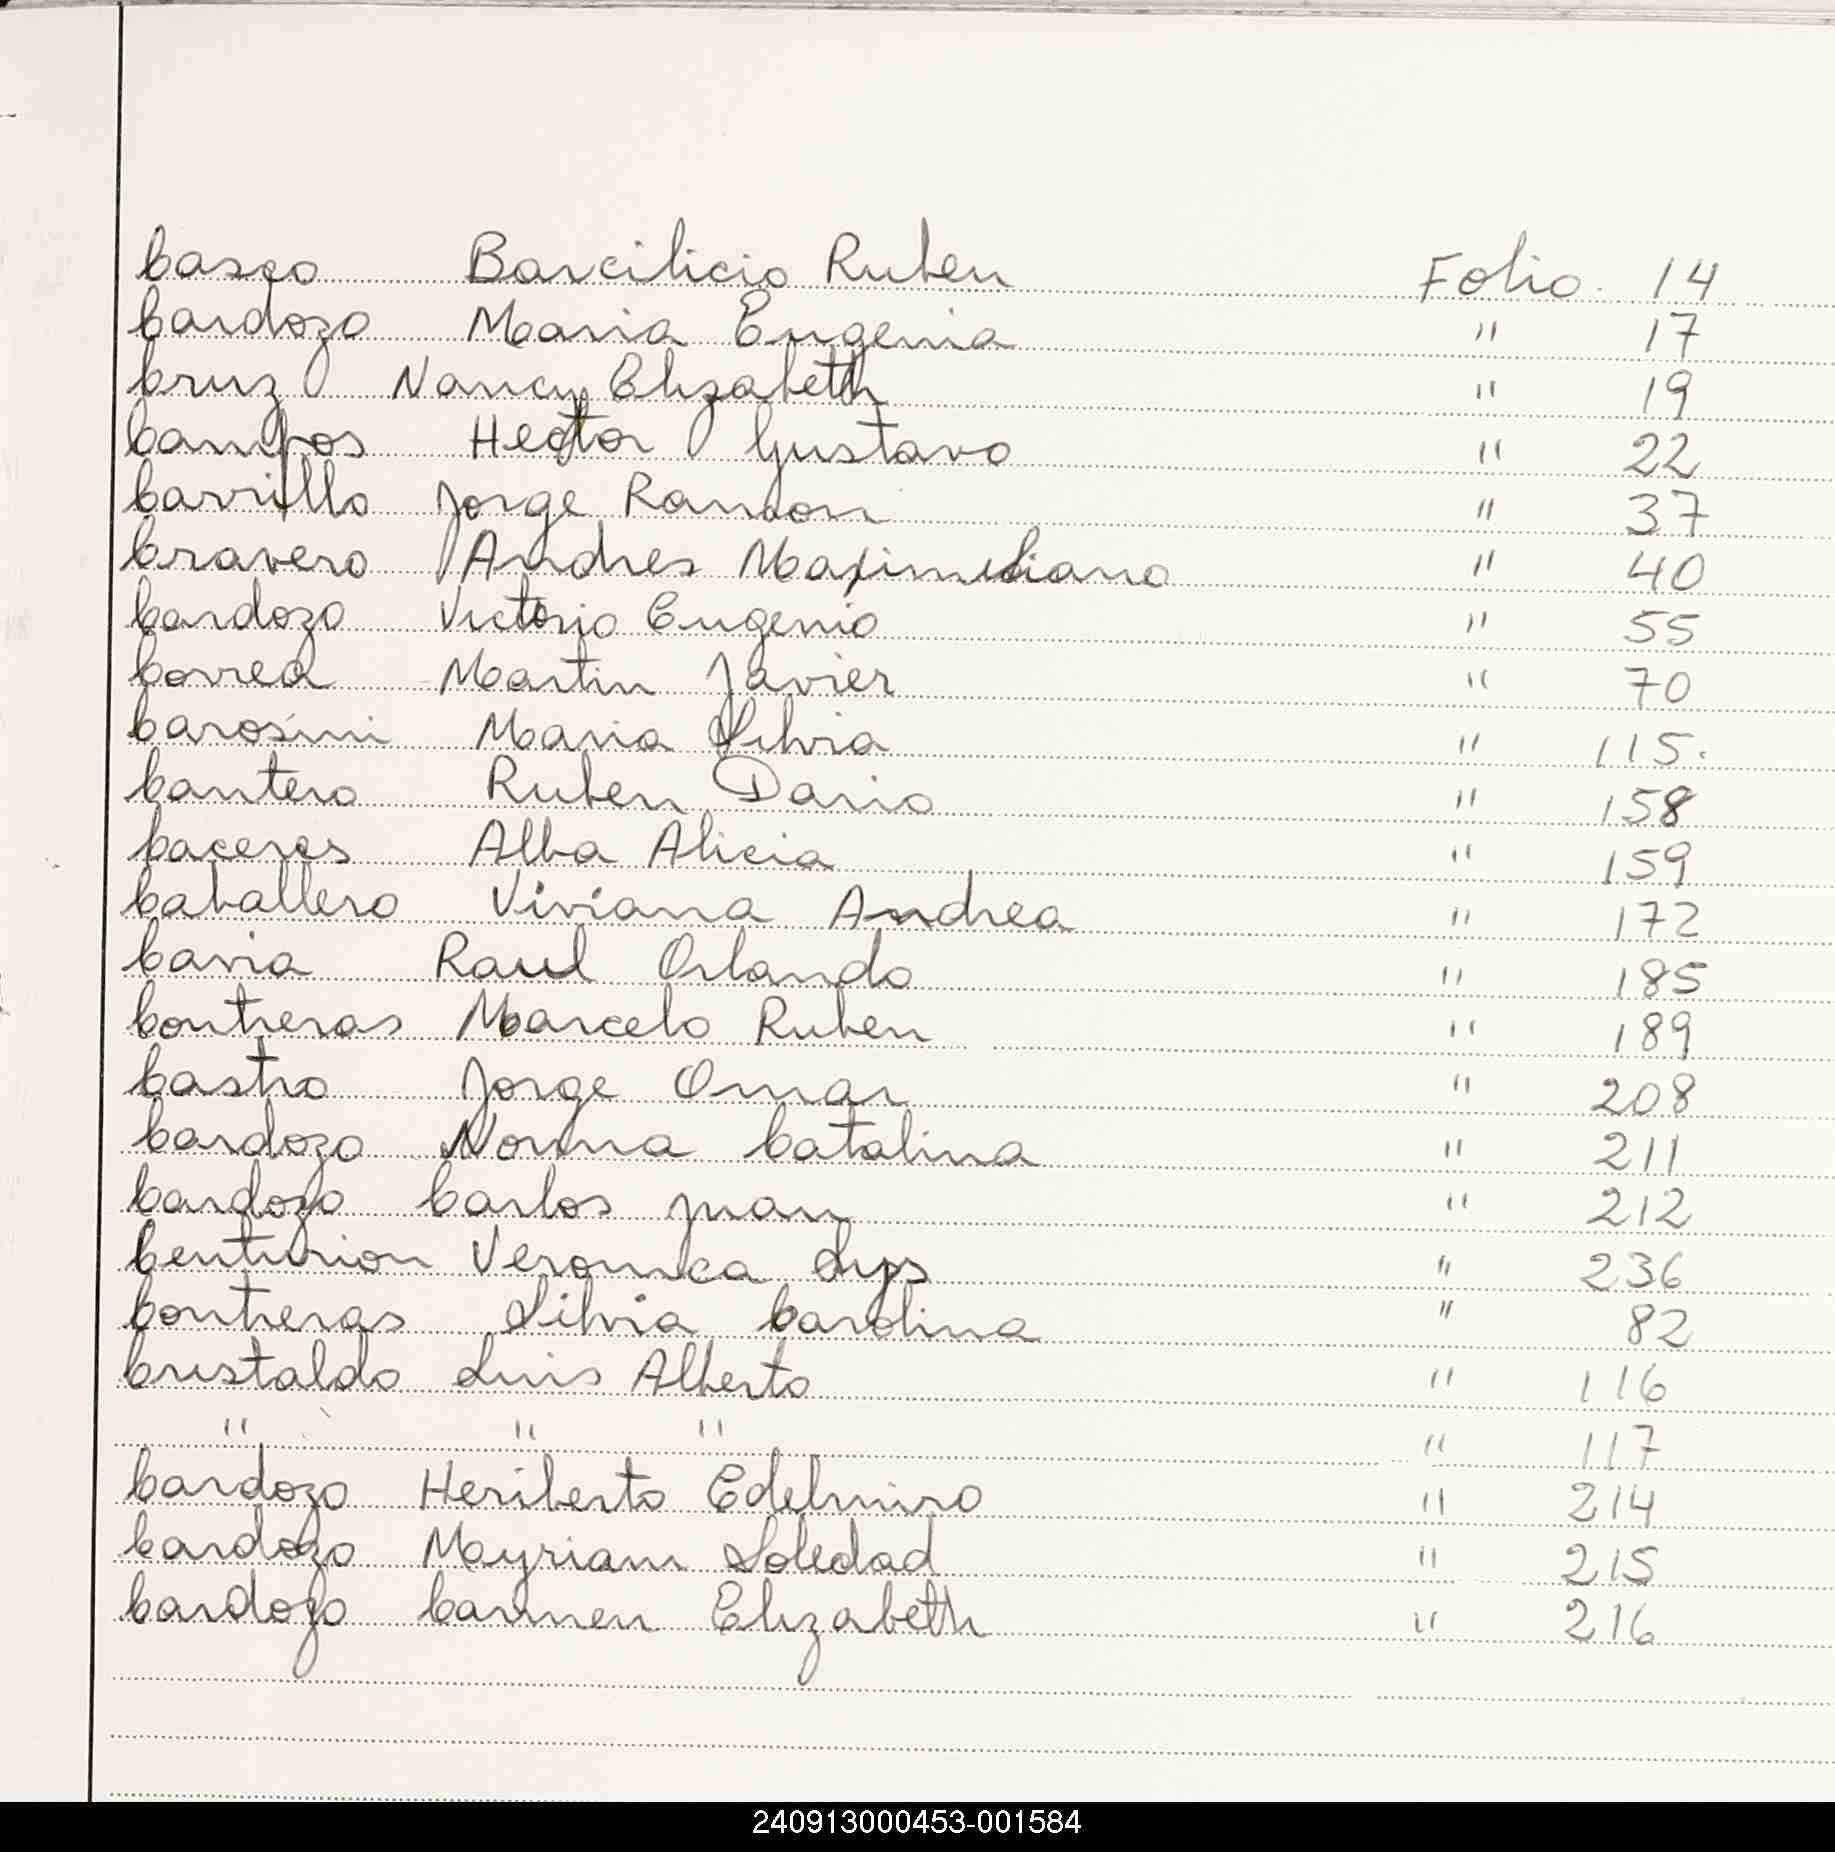 Casco Barcilicio Ruben Folio. 14
Cardozo Maria Eugenia " 17
Cruz Nancy Elizabeth " 19
Campos Hector Gustavo " 22
Carrillo Jorge Ramon " 37
Cravero Andres Maximiliano " 40
Cardozo Victorio Eugenio " 55
Correa Martin Javier " 70
Carosini Maria Silvia " 115.
Cantero Ruben Dario " 158
Caceres Alba Alicia " 159
Caballero Viviana Andrea " 172
Caria Raul Orlando " 185
Contreras Marcelo Ruben " 189
Castro Jorge Omar " 208
Cardozo Norma Catalina " 211
Cardozo Carlos Juan " 212
Centurion Veronica Lys " 236
Contreras Silvia Carolina " 82
Cristaldo Luis Alberto " 116
" " " " 117
Cardozo Heriberto Edelmiro " 214
Cardozo Myriam Soledad " 215
Cardozo Carmen Elizabeth " 216
240913000453-001584